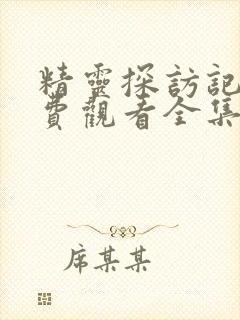 精靈探訪記
費觀看全集
席某某